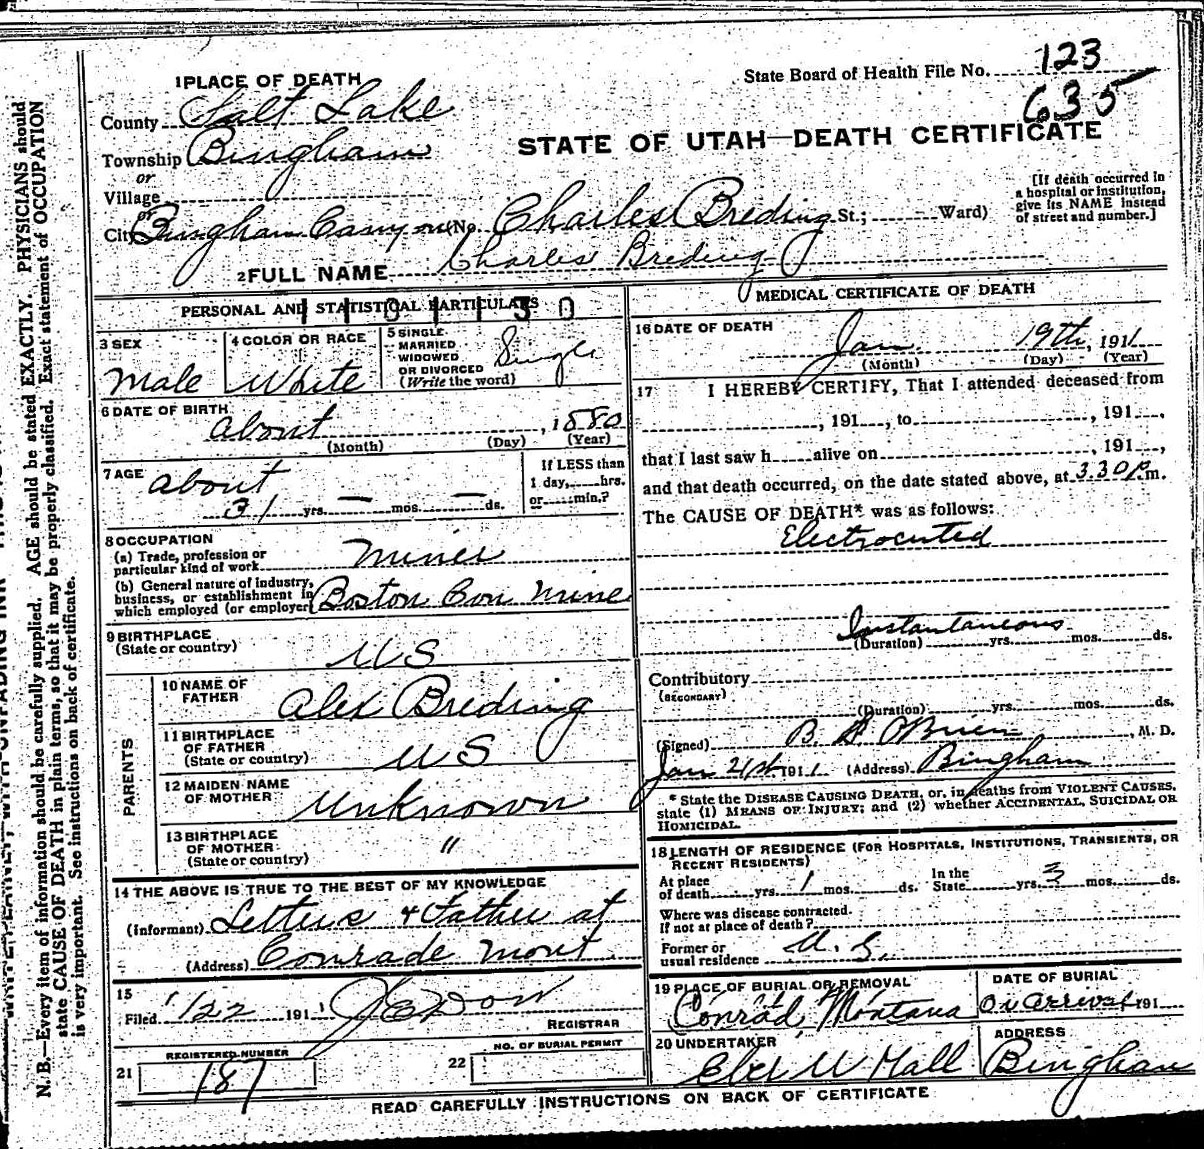 State Board of Health File No. 123
635
1 PLACE OF DEATH
County Salt Lake
Township Bingham
or
Village
or
City Bingham Canyon No. Charles Breding St.; Ward)
STATE OF UTAH—DEATH CERTIFICATE
[If death occurred in
a hospital or institution,
give its NAME instead
of street and number.]
2 FULL NAME Charles Breding
PERSONAL AND STATISTICAL PARTICULARS
3 SEX
Male
4 COLOR OR RACE
White
5 SINGLE
MARRIED
WIDOWED
OR DIVORCED
(Write the word)
Single
6 DATE OF BIRTH
about , 1880
(Month) (Day) (Year)
7 AGE about
31 yrs. — mos. — ds.
If LESS than
1 day, hrs.
or min.?
8 OCCUPATION
(a) Trade, profession or
particular kind of work Miner
(b) General nature of industry,
business, or establishment in
which employed (or employer) Boston Con Mine
9 BIRTHPLACE
(State or country) U S
PARENTS
10 NAME OF
FATHER Alex Breding
11 BIRTHPLACE
OF FATHER
(State or country) U S
12 MAIDEN NAME
OF MOTHER Unknown
13 BIRTHPLACE
OF MOTHER
(State or country) "
14 THE ABOVE IS TRUE TO THE BEST OF MY KNOWLEDGE
(Informant) Letters & Father at
(Address) Conrade Mont.
15
Filed 1/22 191 J E Dow
REGISTRAR
REGISTERED NUMBER
21 187
NO. OF BURIAL PERMIT
22
MEDICAL CERTIFICATE OF DEATH
16 DATE OF DEATH
Jan. 19th, 1911
(Month) (Day) (Year)
17 I HEREBY CERTIFY, That I attended deceased from
, 191 , to , 191 ,
that I last saw h alive on , 191 ,
and that death occurred, on the date stated above, at 3.30 P m.
The CAUSE OF DEATH* was as follows:
Electrocuted
Instantaneous
(Duration) yrs. mos. ds.
Contributory
(SECONDARY)
(Duration) yrs. mos. ds.
(Signed) B. O'Brien , M. D.
Jan 21st 1911 (Address) Bingham
* State the DISEASE CAUSING DEATH, or, in deaths from VIOLENT CAUSES,
state (1) MEANS OF INJURY; and (2) whether ACCIDENTAL, SUICIDAL OR
HOMICIDAL.
18 LENGTH OF RESIDENCE (FOR HOSPITALS, INSTITUTIONS, TRANSIENTS, OR
RECENT RESIDENTS)
At place
of death yrs. 1 mos. ds.
In the
State yrs. 3 mos. ds.
Where was disease contracted.
If not at place of death?
Former or
usual residence U. S.
19 PLACE OF BURIAL OR REMOVAL
Conrad, Montana
DATE OF BURIAL
On arrival 191
20 UNDERTAKER
Hall
ADDRESS
Bingham
READ CAREFULLY INSTRUCTIONS ON BACK OF CERTIFICATE
N. B.—Every item of information should be carefully supplied. AGE should be stated EXACTLY. PHYSICIANS should
state CAUSE OF DEATH in plain terms, so that it may be properly classified. Exact statement of OCCUPATION
is very important. See instructions on back of certificate.